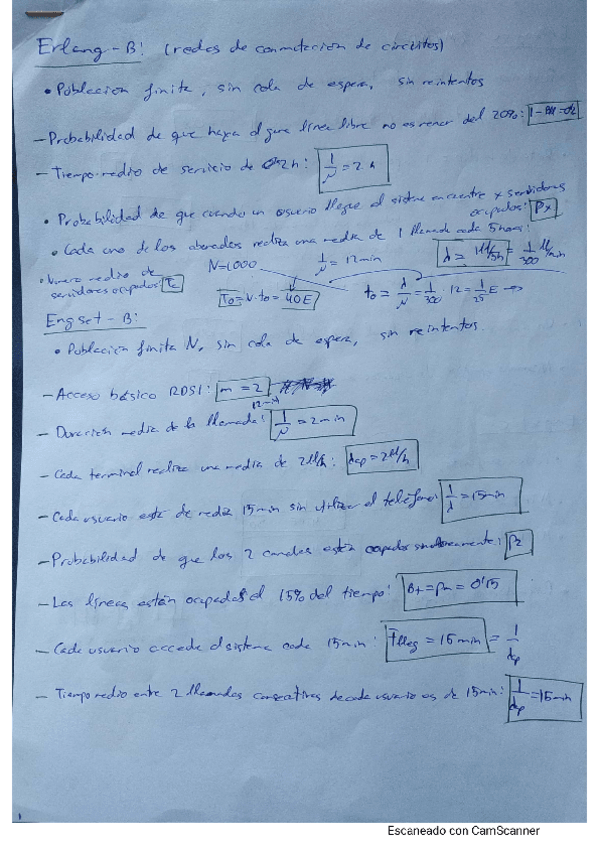 Erlang-B: (redes de conmutación de circuitos)
• Población finita, sin cola de espera, sin reintentos
- Probabilidad de que haya alguna línea libre no es menor del 20%:
- Tiempo medio de servicio de 2h: 1/μ = 2h
• Probabilidad de que cuando un usuario llegue al sistema encuentre x servidores
ocupados: Px
• Cada uno de los abonados realiza una media de 1 llamada cada 5 horas:
λ = 1ll/5h = 1/300 ll/min
• Número medio de
servidores ocupados: Tc
N=1000 1/μ = 12min
To = N·to = 40E to = λ/μ = 1/300 · 12 = 1/25 E →
Engset-B:
• Población finita N, sin cola de espera, sin reintentos.
- Acceso básico RDSI: m = 2
- Duración media de la llamada: 1/μ = 2min
- Cada terminal realiza una media de 2ll/h: λap = 2ll/h
- Cada usuario está de media 15min sin utilizar el teléfono: 1/λ = 15min
- Probabilidad de que los 2 canales estén ocupados simultáneamente: P2
- Las líneas están ocupadas el 15% del tiempo: Bt = Pm = 0'15
- Cada usuario accede al sistema cada 15min: Tlleg = 15min = 1/λap
- Tiempo medio entre 2 llamadas consecutivas de cada usuario es de 15min: 1/λap = 15min
Escaneado con CamScanner